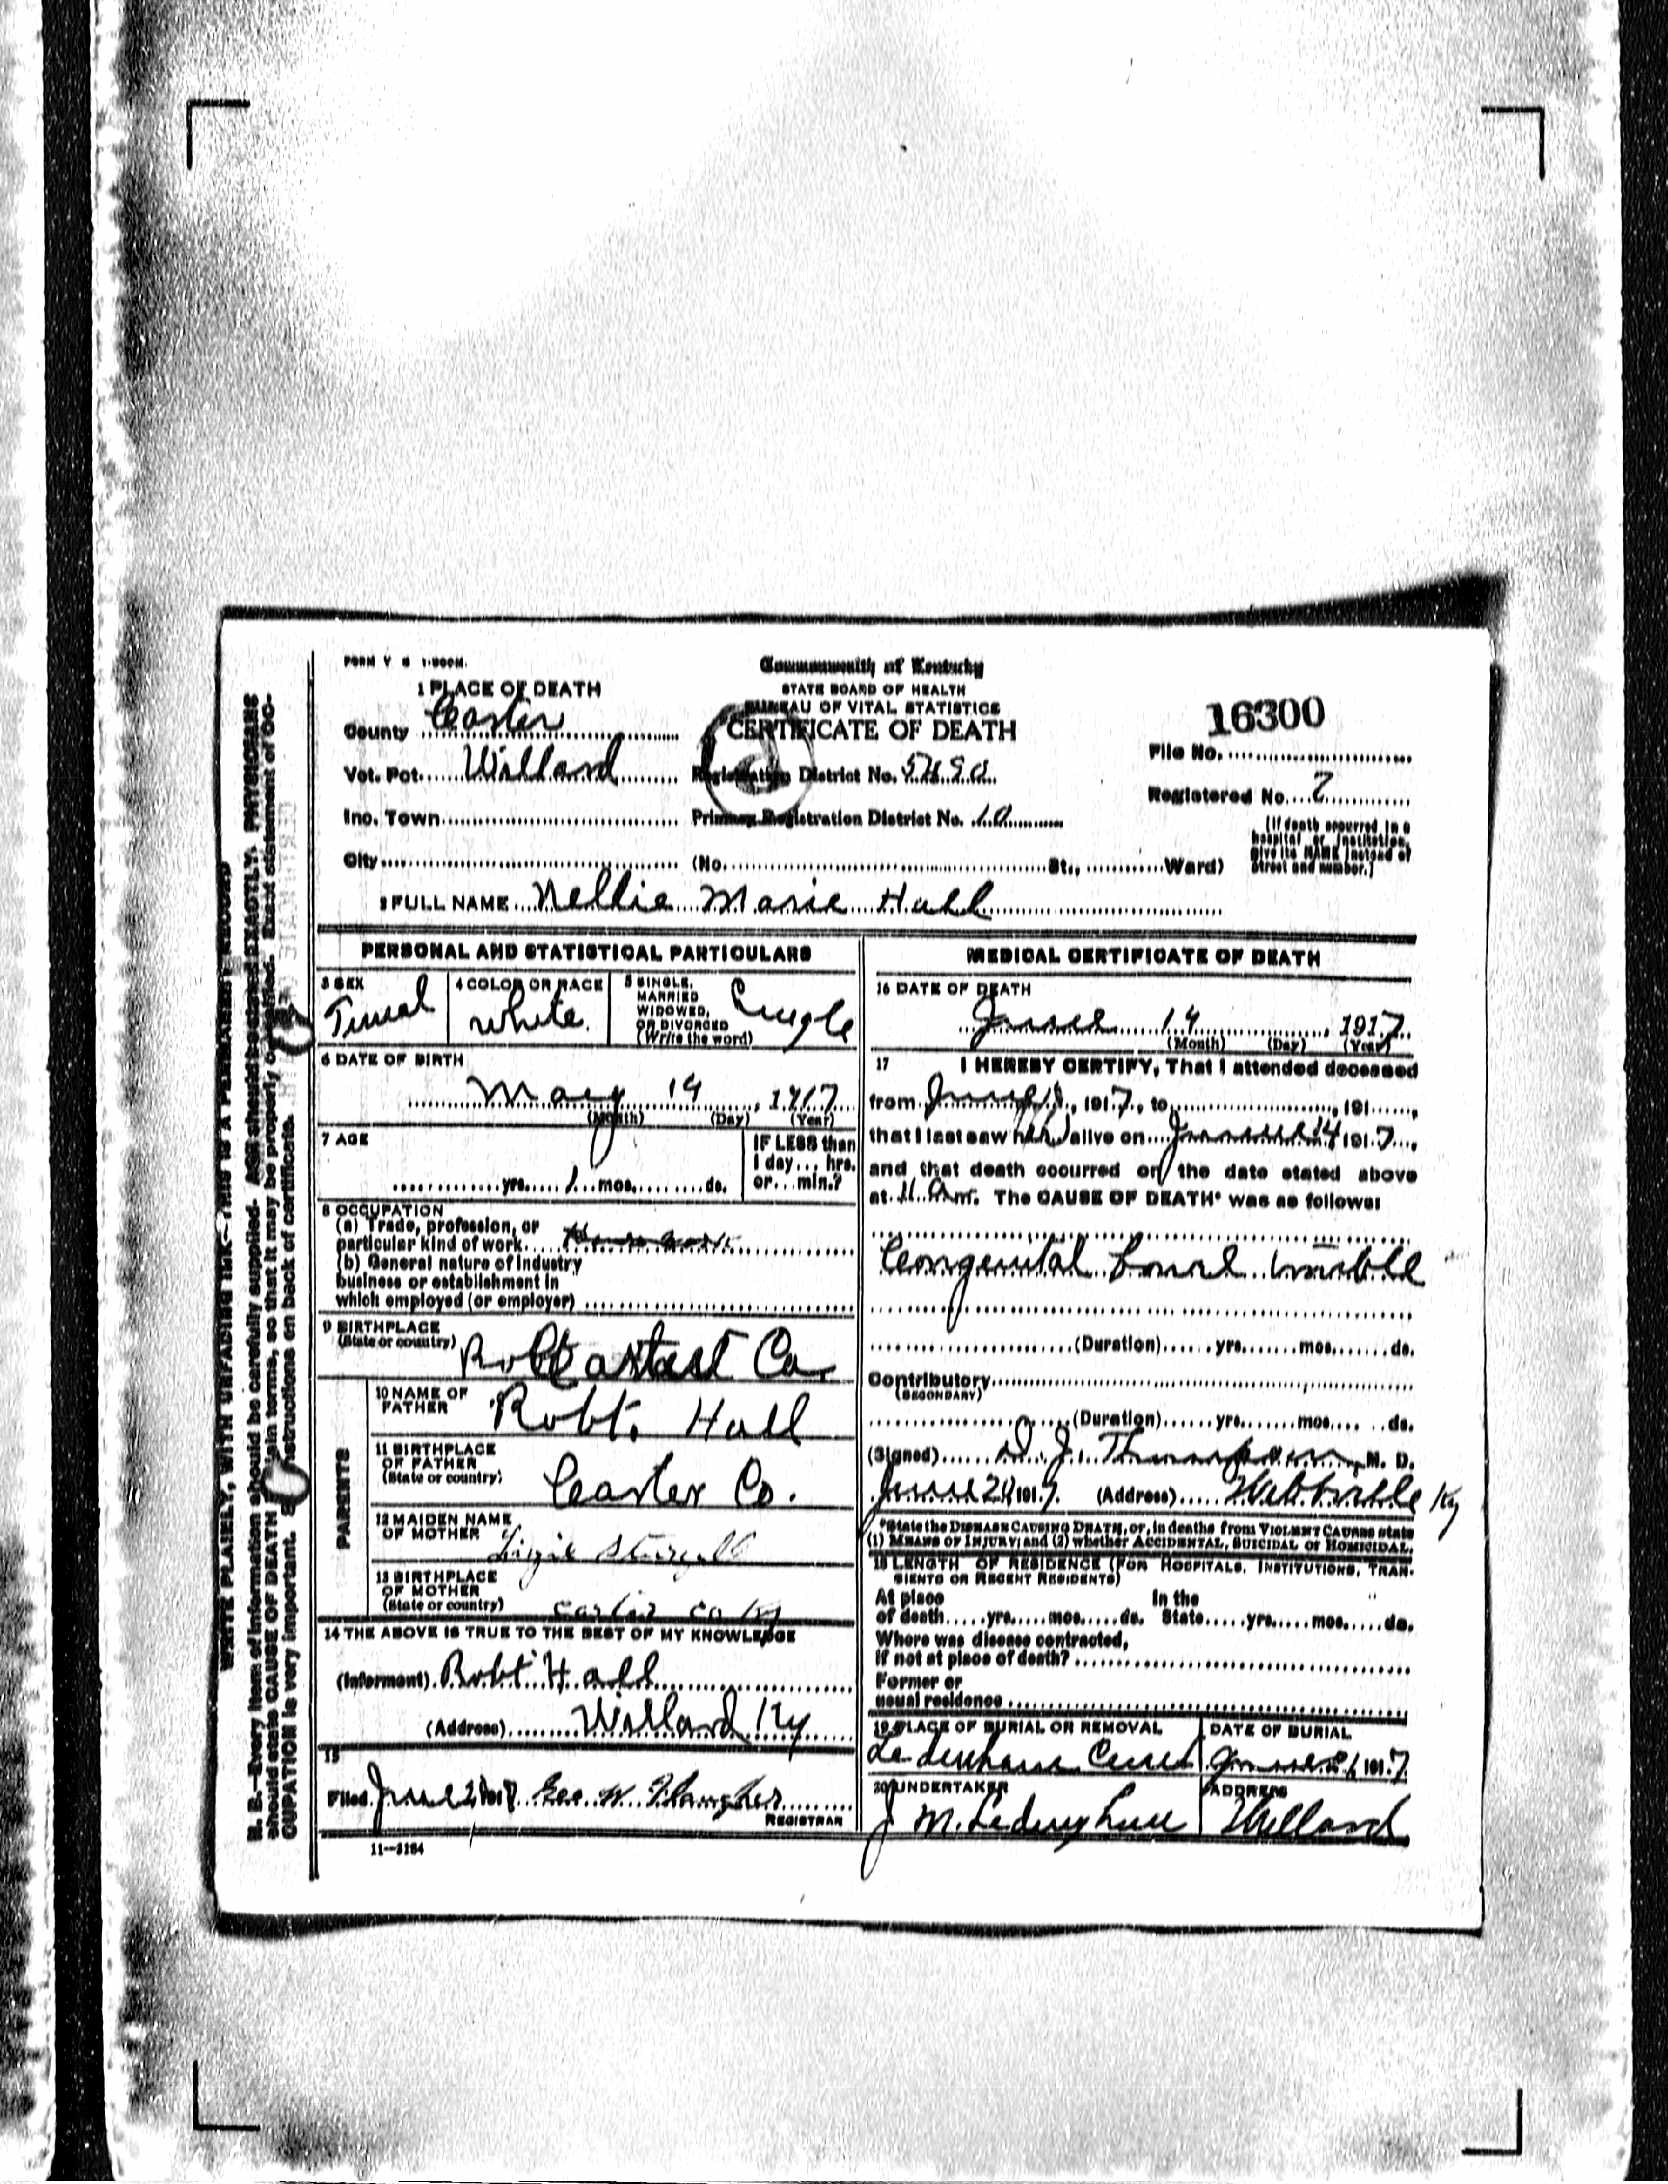 FORM V S 1-500M.
Commonwealth of Kentucky
1 PLACE OF DEATH
STATE BOARD OF HEALTH
BUREAU OF VITAL STATISTICS
CERTIFICATE OF DEATH
16300
County Carter
File No.
Vot. Pct. Willard Registration District No.
Registered No. 2
Inc. Town Primary Registration District No. 10
(If death occurred in a hospital or institution, give its NAME instead of street and number.)
City (No. St., Ward)
2 FULL NAME Nellie Marie Hall
PERSONAL AND STATISTICAL PARTICULARS
3 SEX
4 COLOR OR RACE
White
5 SINGLE, MARRIED WIDOWED, OR DIVORCED (Write the word)
Single
6 DATE OF BIRTH
May 14, 1917
(Month) (Day) (Year)
7 AGE
yrs. 1 mos. ds.
IF LESS than 1 day... hrs. or... min.?
8 OCCUPATION
(a) Trade, profession, or
particular kind of work
(b) General nature of industry
business or establishment in
which employed (or employer)
9 BIRTHPLACE
(State or country)
Co.
PARENTS
10 NAME OF FATHER
Robt. Hall
11 BIRTHPLACE OF FATHER (State or country)
Carter Co.
12 MAIDEN NAME OF MOTHER
Lizzie
13 BIRTHPLACE OF MOTHER (State or country)
Carter Co Ky
14 THE ABOVE IS TRUE TO THE BEST OF MY KNOWLEDGE
(Informant) Robt Hall
(Address) Willard Ky
15
Filed June 1917 Geo. W.
REGISTRAR
11—3184
MEDICAL CERTIFICATE OF DEATH
16 DATE OF DEATH
June 14, 1917
(Month) (Day) (Year)
17 I HEREBY CERTIFY, That I attended deceased
from June, 1917, to, 191
that I last saw her alive on June 14 1917,
and that death occurred on the date stated above
at 11 a m. The CAUSE OF DEATH* was as follows:
Congenital
(Duration) yrs. mos. ds.
Contributory
(SECONDARY)
(Duration) yrs. mos. ds.
(Signed) D. J. Thompson, M. D.
June 1917 (Address) Webbville Ky
*State the DISEASE CAUSING DEATH, or, in deaths from VIOLENT CAUSES state
(1) MEANS OF INJURY; and (2) whether ACCIDENTAL, SUICIDAL or HOMICIDAL.
18 LENGTH OF RESIDENCE (FOR HOSPITALS, INSTITUTIONS, TRAN-
SIENTS OR RECENT RESIDENTS)
At place of death yrs. mos. ds. In the State yrs. mos. ds.
Where was disease contracted,
if not at place of death?
Former or
usual residence
19 PLACE OF BURIAL OR REMOVAL
DATE OF BURIAL
June 1917
20 UNDERTAKER
ADDRESS
J M. Willard
WRITE PLAINLY, WITH UNFADING INK—THIS IS A PERMANENT RECORD
N. B.—Every item of information should be carefully supplied. AGE should be stated EXACTLY. PHYSICIANS
should state CAUSE OF DEATH in plain terms, so that it may be properly classified. Exact statement of OC-
CUPATION is very important. See instructions on back of certificate.